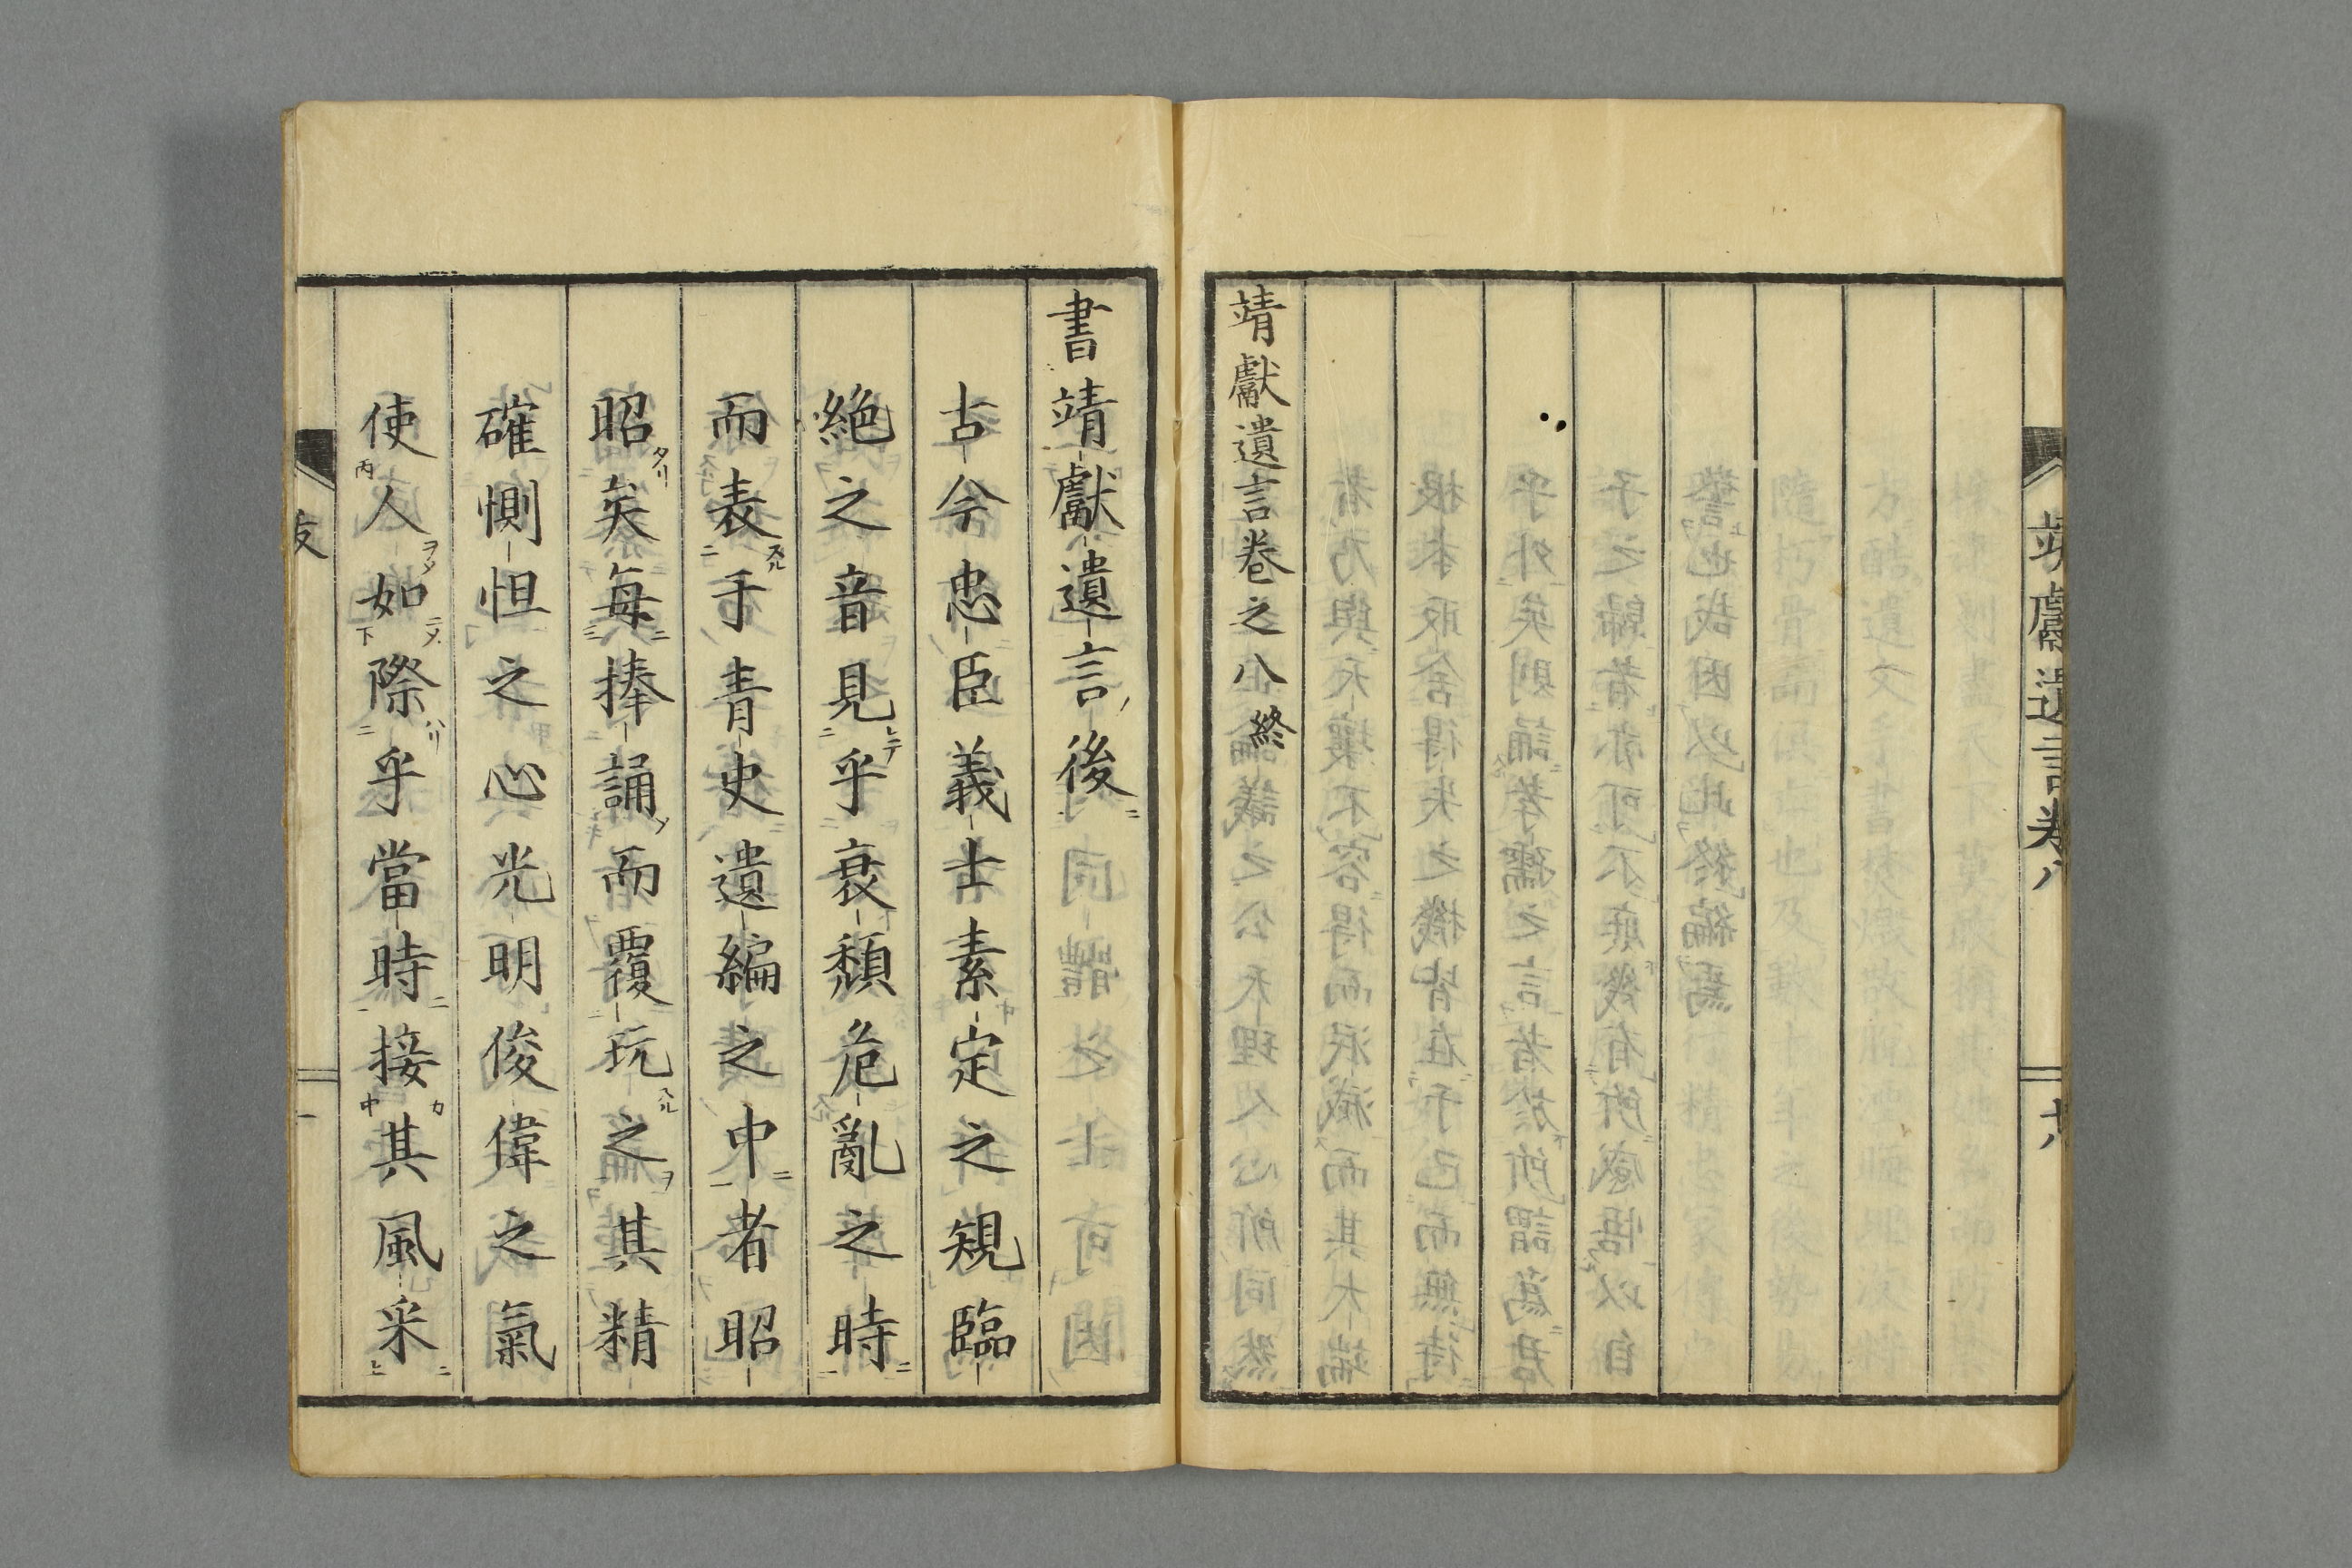 靖獻遺言卷八
靖獻遺言卷之八終
書靖獻遺言後
古今忠臣義士素定之規臨
絶之音見乎衰頽危亂之時
而表手青史遺編之中者昭
昭矣毎捧誦而覆玩之其精
確惻怛之心光明俊偉之氣
使人如際乎當時接其風采
跋
一